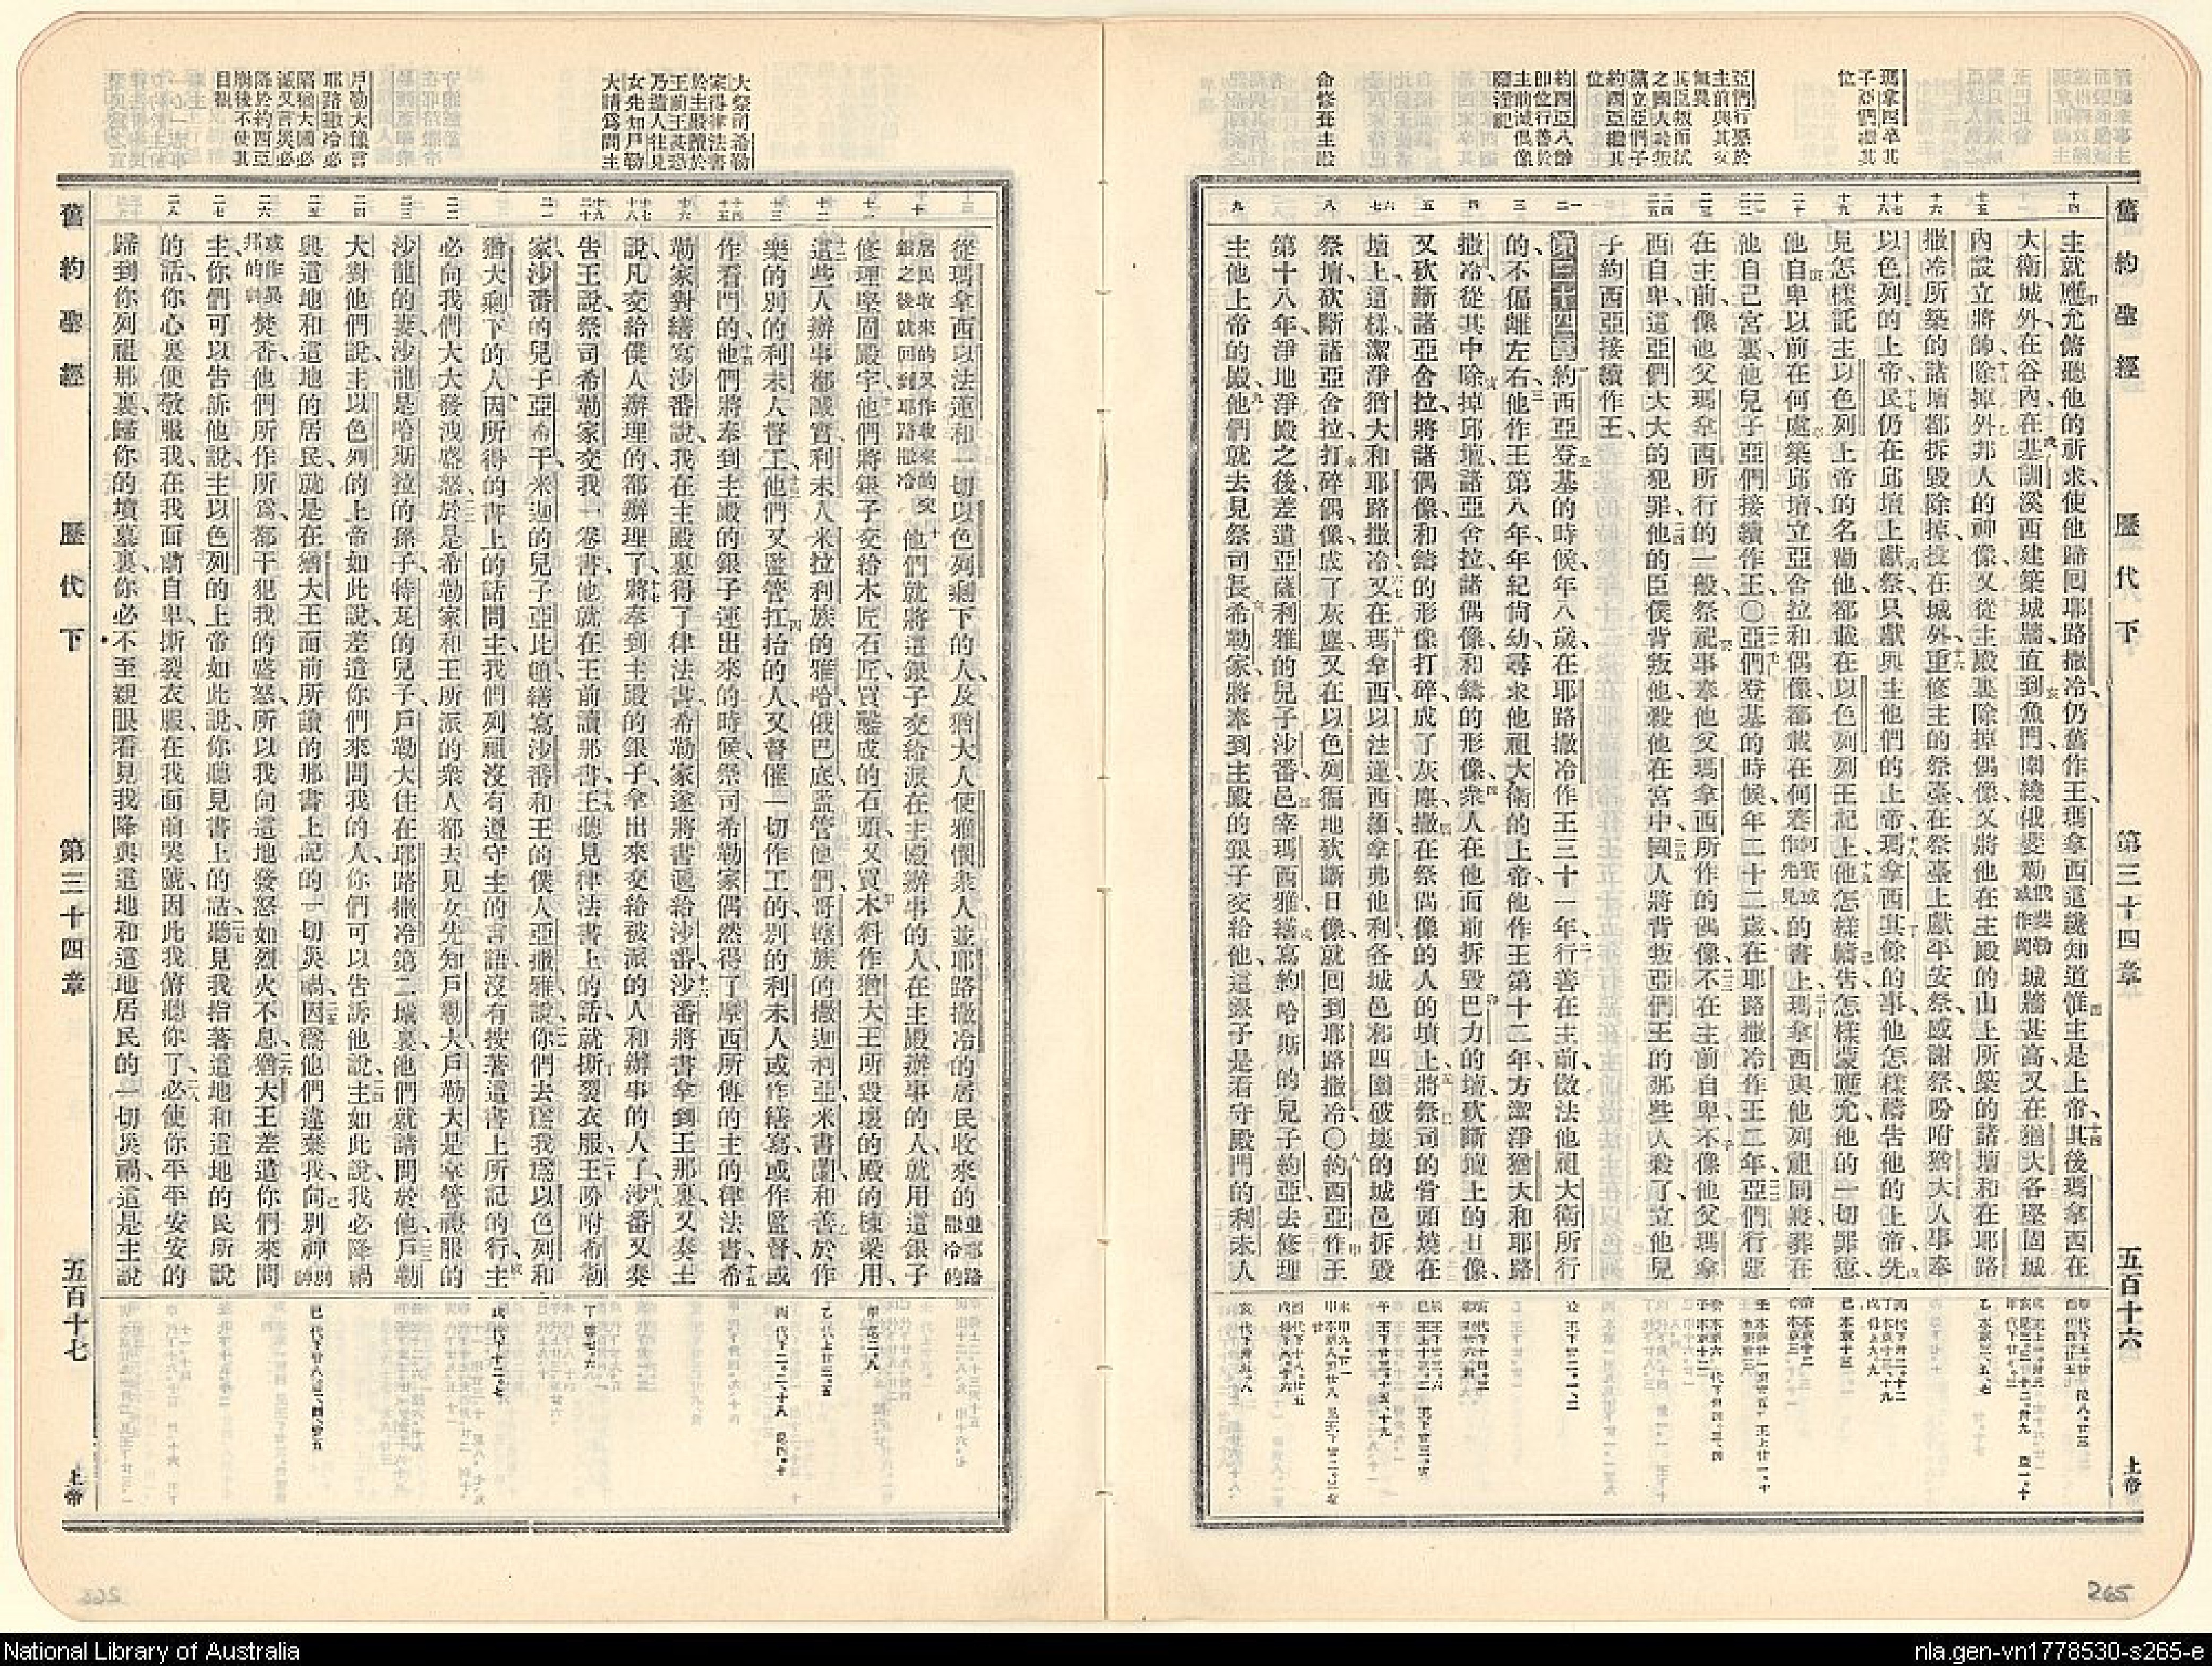 舊約聖經　歷代下　第三十四章　五百十六　上帝
瑪拿西卒其
子亞們繼其
位
亞們行惡於
主前與其父
無異
其臣叛而弒
之國人誅叛
黨立亞們子
約西亞繼其
位
約西亞八齡
即位行善於
主前滅偶像
廢淫祀
命修葺主殿
主就應允俯聽他的祈求使他歸回耶路撒冷、仍舊作王、瑪拿西這纔知道惟主是上帝、其後瑪拿西在
大衛城外、在谷內、在基訓溪西建築城牆、直到魚門、環繞俄斐勒俄斐勒或作岡城牆甚高、又在猶大各堅固城
內設立將帥、除掉外邦人的神像、又從主殿裏除掉偶像、又將他在主殿的山上所築的諸壇和在耶路
撒冷所築的諸壇都拆毀除掉、投在城外、重修主的祭臺、在祭臺上獻平安祭、感謝祭、吩咐猶大人事奉
以色列的上帝、民仍在邱壇上獻祭、只獻與主他們的上帝、瑪拿西其餘的事、他怎樣禱告他的上帝、先
見怎樣託主以色列上帝的名勸他、都載在以色列列王記上、他怎樣禱告、怎樣蒙應允、他的一切罪愆、
他自卑以前在何處築邱壇、立亞舍拉和偶像、都載在何賽何賽或作先見的書上、瑪拿西與他列祖同寢、葬在
他自己宮裏、他兒子亞們接續作王、〇亞們登基的時候、年二十二歲、在耶路撒冷作王二年、亞們行惡
在主前、像他父瑪拿西所行的一般、祭祀事奉他父瑪拿西所作的偶像、不在主前自卑、不像他父瑪拿
西自卑、這亞們大大的犯罪、他的臣僕背叛他、殺他在宮中、國人將背叛亞們王的那些人殺了、立他兒
子約西亞接續作王、
第三十四章約西亞登基的時候、年八歲、在耶路撒冷作王三十一年、行善在主前、傚法他祖大衛所行
的、不偏離左右、他作王第八年、年紀尚幼、尋求他祖大衛的上帝、他作王第十二年、方潔淨猶大和耶路
撒冷、從其中除掉邱壇、諸亞舍拉、諸偶像、和鑄的形像、衆人在他面前拆毀巴力的壇、砍斷壇上的日像、
又砍斷諸亞舍拉、將諸偶像和鑄的形像打碎、成了灰塵、撒在祭偶像的人的墳上、將祭司的骨頭燒在
壇上、這樣潔淨猶大和耶路撒冷、又在瑪拿西、以法蓮、西緬、拿弗他利各城邑和四圍破壞的城邑拆毀
祭壇、砍斷諸亞舍拉、打碎偶像、成了灰塵、又在以色列徧地砍斷日像、就回到耶路撒冷、〇約西亞作王
第十八年、淨地淨殿之後、差遣亞薩利雅的兒子沙番、邑宰瑪西雅、繕寫約哈斯的兒子約亞、去修理
主他上帝的殿、他們就去見祭司長希勒家、將奉到主殿的銀子交給他、這銀子是看守殿門的利未人
265
大祭司希勒
家得律法書
於主殿讀於
王前王甚恐
乃遣人往見
女先知戶勒
大請爲問主
戶勒大豫言
耶路撒冷必
陷猶大國必
滅又言災必
降於約西亞
崩後不使其
目覩
從瑪拿西以法蓮和一切以色列剩下的人、及猶大人便雅憫衆人、並耶路撒冷的居民收來的並耶路撒冷的
居民收來的又作收來的交銀之後就回到耶路撒冷他們就將這銀子交給派在主殿辦事的人、在主殿辦事的人就用這銀子
修理堅固殿宇、他們將銀子交給木匠石匠、買鑿成的石頭、又買木料、作猶大王所毀壞的殿的棟梁用、
這些人辦事都誠實、利未人米拉利族的雅哈俄巴底、監管他們、哥轄族的撒迦利亞米書蘭和善於作
樂的別的利未人督工、他們又監管扛抬的人、又督催一切作工的、別的利未人或作繕寫、或作監督、或
作看門的、他們將奉到主殿的銀子運出來的時候、祭司希勒家偶然得了摩西所傳的主的律法書、希
勒家對繕寫沙番說、我在主殿裏得了律法書、希勒家遂將書遞給沙番、沙番將書拿到王那裏、又奏王
說、凡交給僕人辦理的、都辦理了、將奉到主殿的銀子、拿出來交給被派的人和辦事的人了、沙番又奏
告王說、祭司希勒家交我一卷書、他就在王前讀那書、王聽見律法書上的話、就撕裂衣服、王吩咐希勒
家、沙番的兒子亞希干、米迦的兒子亞比頓、繕寫沙番和王的僕人亞撒雅說、你們去爲我、爲以色列和
猶大剩下的人、因所得的書上的話問主、我們列祖沒有遵守主的言語、沒有按著這書上所記的行、主
必向我們大大發洩盛怒、於是希勒家和王所派的衆人都去見女先知戶勒大、戶勒大是掌管禮服的
沙龍的妻、沙龍是哈斯拉的孫子、特瓦的兒子、戶勒大住在耶路撒冷第二城裏、他們就請問於他、戶勒
大對他們說、主以色列的上帝如此說、差遣你們來問我的人、你們可以告訴他說、主如此說、我必降禍
與這地和這地的居民、就是在猶大王面前所讀的那書上記的一切災禍、因爲他們違棄我、向別神別神
或作異邦的神焚香、他們所作所爲、都干犯我的盛怒、所以我向這地發怒如烈火不息、猶大王差遣你們來問
主、你們可以告訴他說、主以色列的上帝如此說、你聽見書上的話、聽見我指著這地和這地的民所說
的話、你心裏便敬服我、在我面前自卑、撕裂衣服、在我面前哭號、因此我俯聽你了、必使你平平安安的
歸到你列祖那裏、歸你的墳墓裏、你必不至親眼看見我降與這地和這地居民的一切災禍、這是主說
舊約聖經　歷代下　第三十四章　五百十七　上帝
National Library of Australia
nla.gen-vn1778530-s265-e